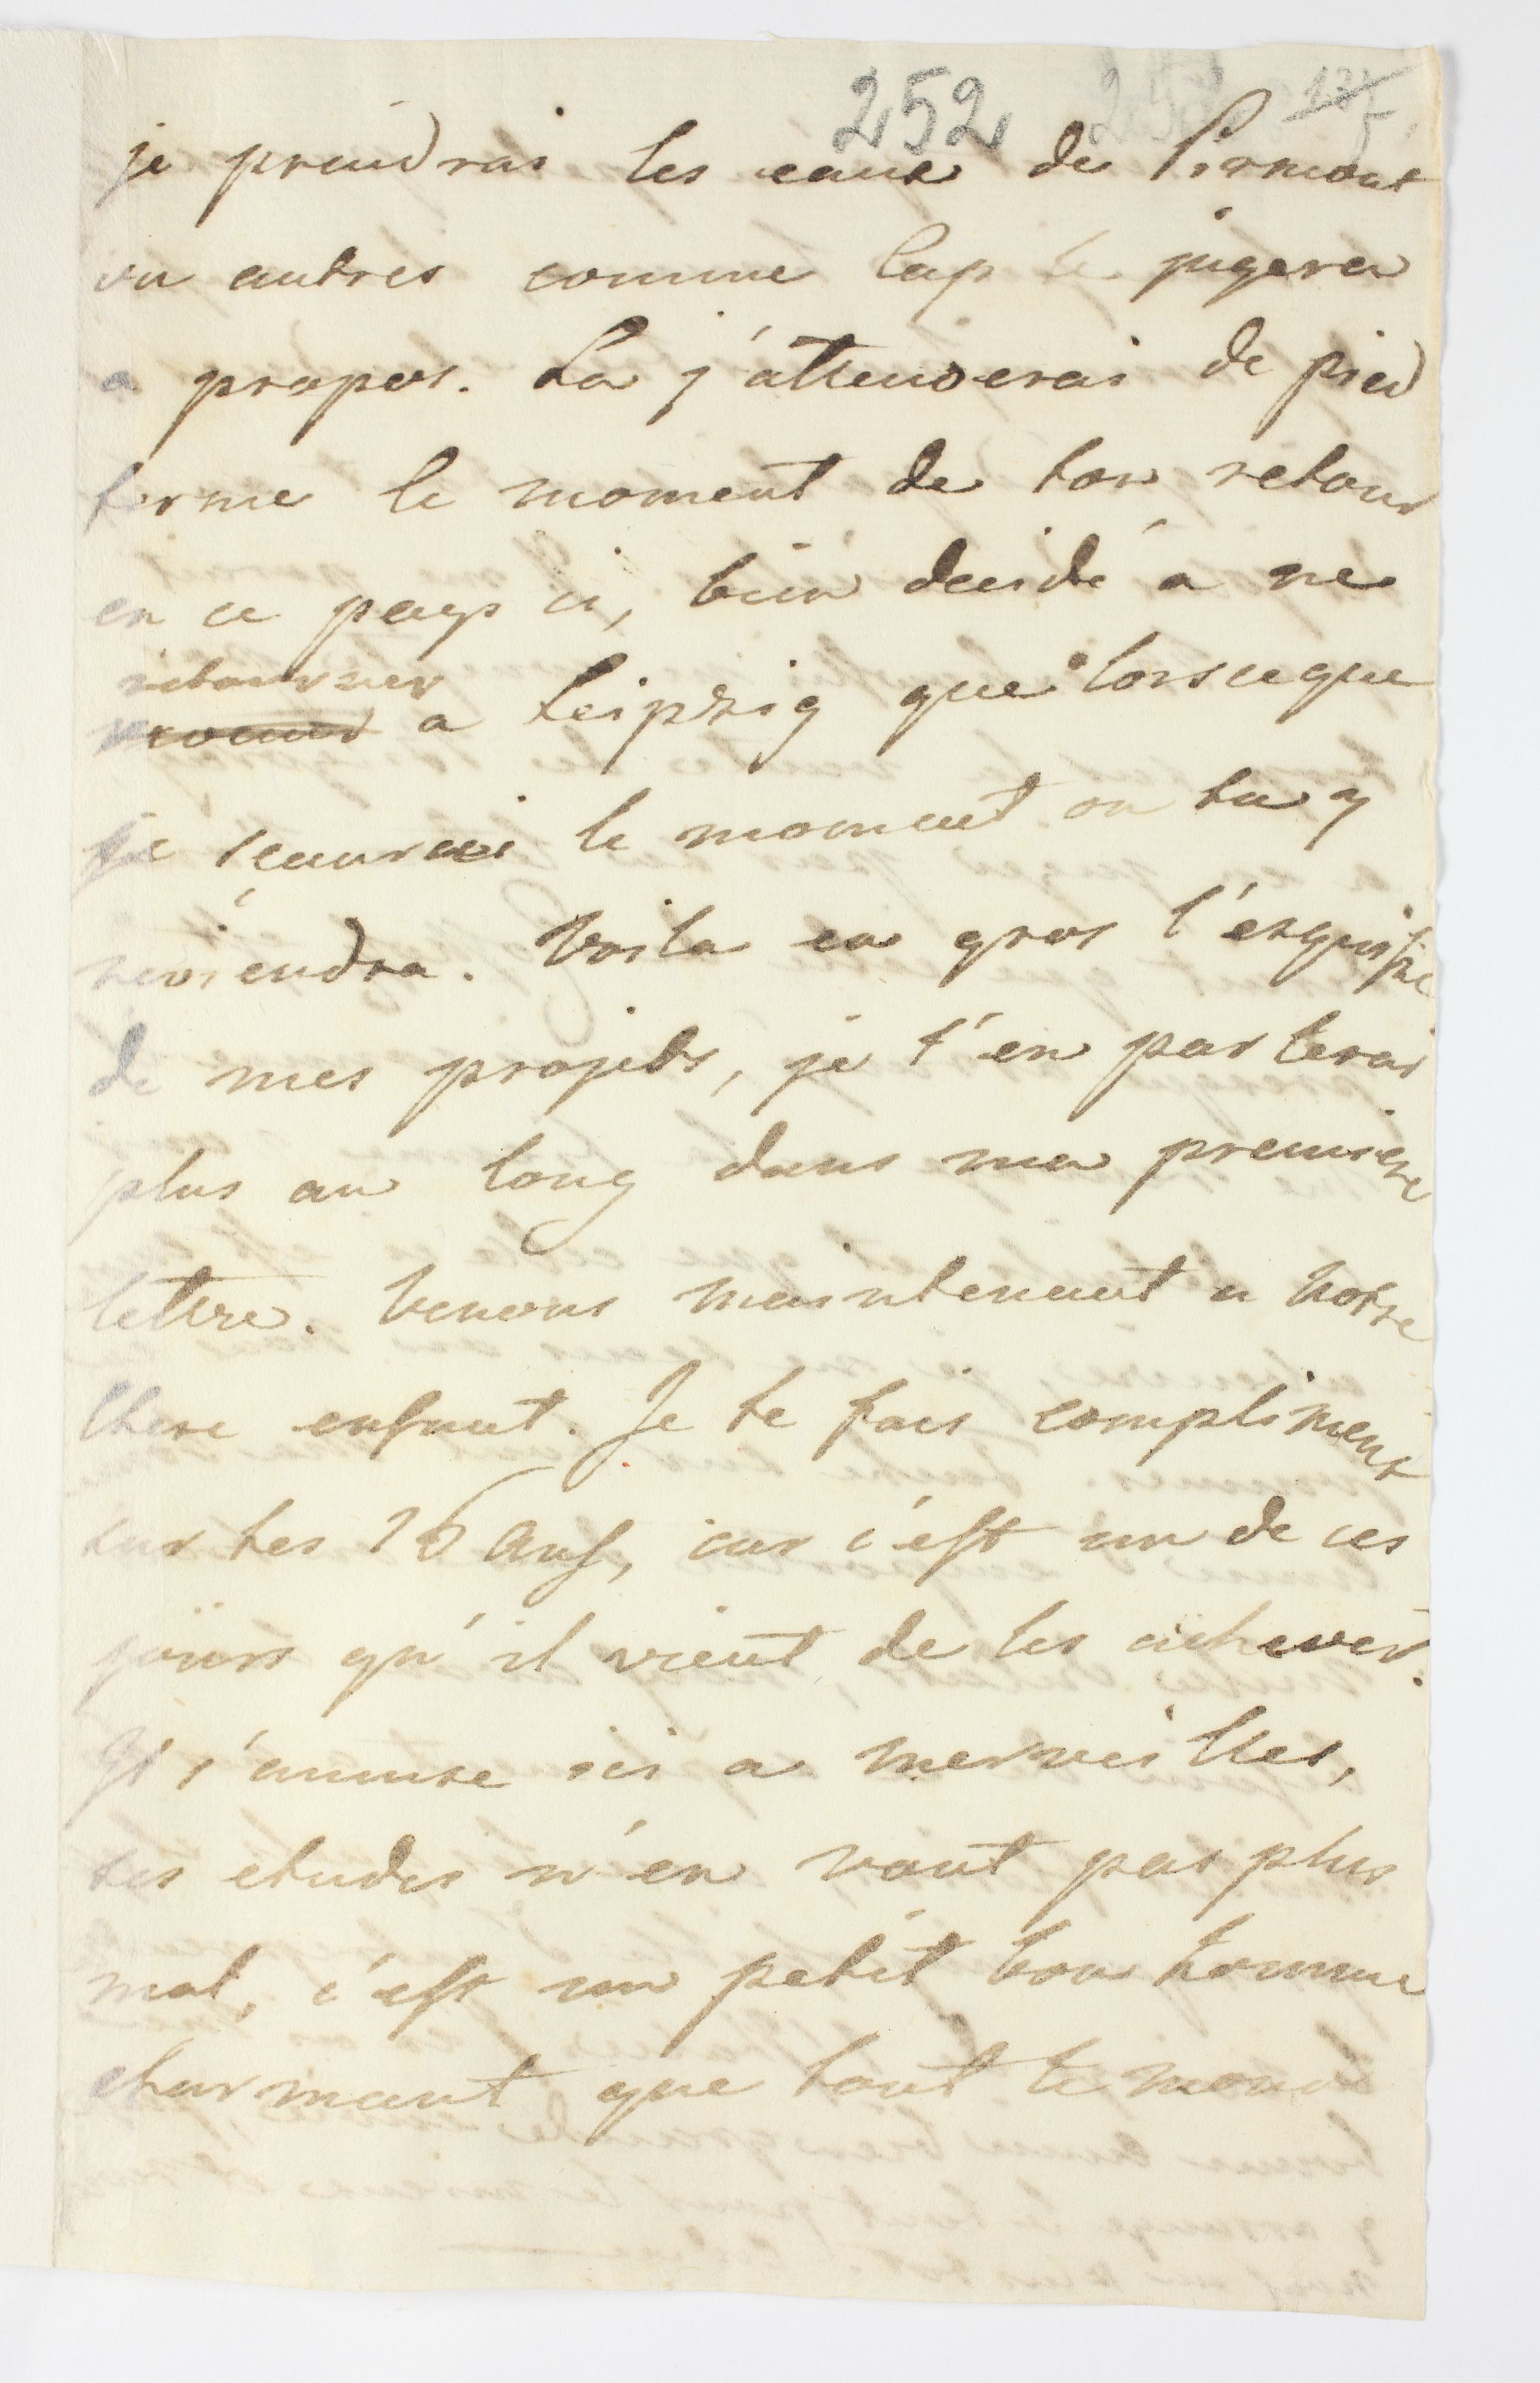 252
je prendrai les eaux de Pirmont
ou autres comme Cap le jugera
a propos. La j'attenderai de pied
ferme le moment de ton retour
en ce pays ci, bien decidé a ne
retourner
a Leipzig que lorsceque
je scaurai le moment ou tu y
reviendra. Voila en gros l'esquisse
de mes projets, je t'en parlerai
plus au long dans ma premiere
lettre. Venons maintenant a notre
chere enfant. Je te fais compliment
sur ses 16 ans, car c'est un de ces
jours qu'il vient de les achever.
Il s'amuse ici a merveilles,
ses etudes n'en vont pas plus
mal, c'est un petit bon homme
charmant que tout le monde